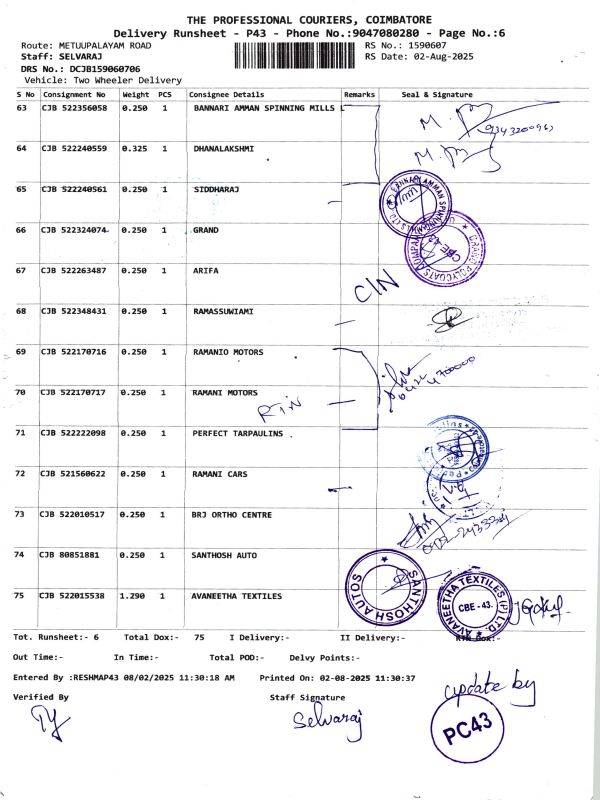 THE PROFESSIONAL COURIERS, COIMBATORE
Delivery Runsheet - P43 - Phone No.:9047080280 - Page No.:6
Route: METUUPALAYAM ROAD RS No.: 1590607
Staff: SELVARAJ RS Date: 02-Aug-2025
DRS No.: DCJB159060706
Vehicle: Two Wheeler Delivery
S No Consignment No Weight PCS Consignee Details Remarks Seal & Signature
63 CJB 522356058 0.250 1 BANNARI AMMAN SPINNING MILLS L
64 CJB 522240559 0.325 1 DHANALAKSHMI
65 CJB 522240561 0.250 1 SIDDHARAJ
66 CJB 522324074 0.250 1 GRAND
67 CJB 522263487 0.250 1 ARIFA
C/N
68 CJB 522348431 0.250 1 RAMASSUWIAMI
69 CJB 522170716 0.250 1 RAMANIO MOTORS
70 CJB 522170717 0.250 1 RAMANI MOTORS
71 CJB 522222098 0.250 1 PERFECT TARPAULINS
72 CJB 521560622 0.250 1 RAMANI CARS
73 CJB 522010517 0.250 1 BRJ ORTHO CENTRE
74 CJB 80851881 0.250 1 SANTHOSH AUTO
SANTHOSH AUTOS
75 CJB 522015538 1.290 1 AVANEETHA TEXTILES
AVANEETHA TEXTILES (P) LTD.
CBE - 43.
Tot. Runsheet:- 6 Total Dox:- 75 I Delivery:- II Delivery:- RTN Dox:-
Out Time:- In Time:- Total POD:- Delvy Points:-
Entered By :RESHMAP43 08/02/2025 11:30:18 AM Printed On: 02-08-2025 11:30:37
Verified By Staff Signature
update by
Selvaraj
PC43